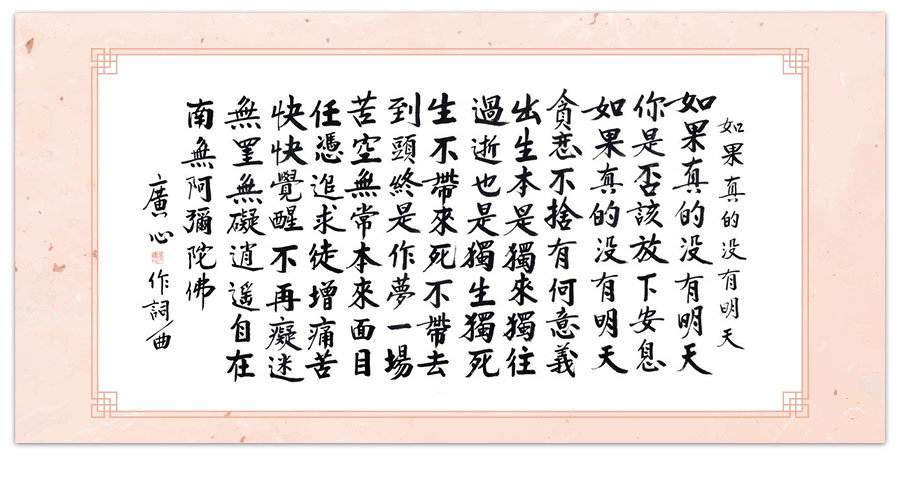 如果真的没有明天
如果真的没有明天
你是否該放下安息
如果真的没有明天
貪戀不捨有何意義
出生本是獨來獨往
過逝也是獨生獨死
生不帶來死不帶去
到頭終是作夢一場
苦空無常本來面目
任憑追求徒增痛苦
快快覺醒不再癡迷
無罣無礙逍遥自在
南無阿彌陀佛
廣心 作詞曲